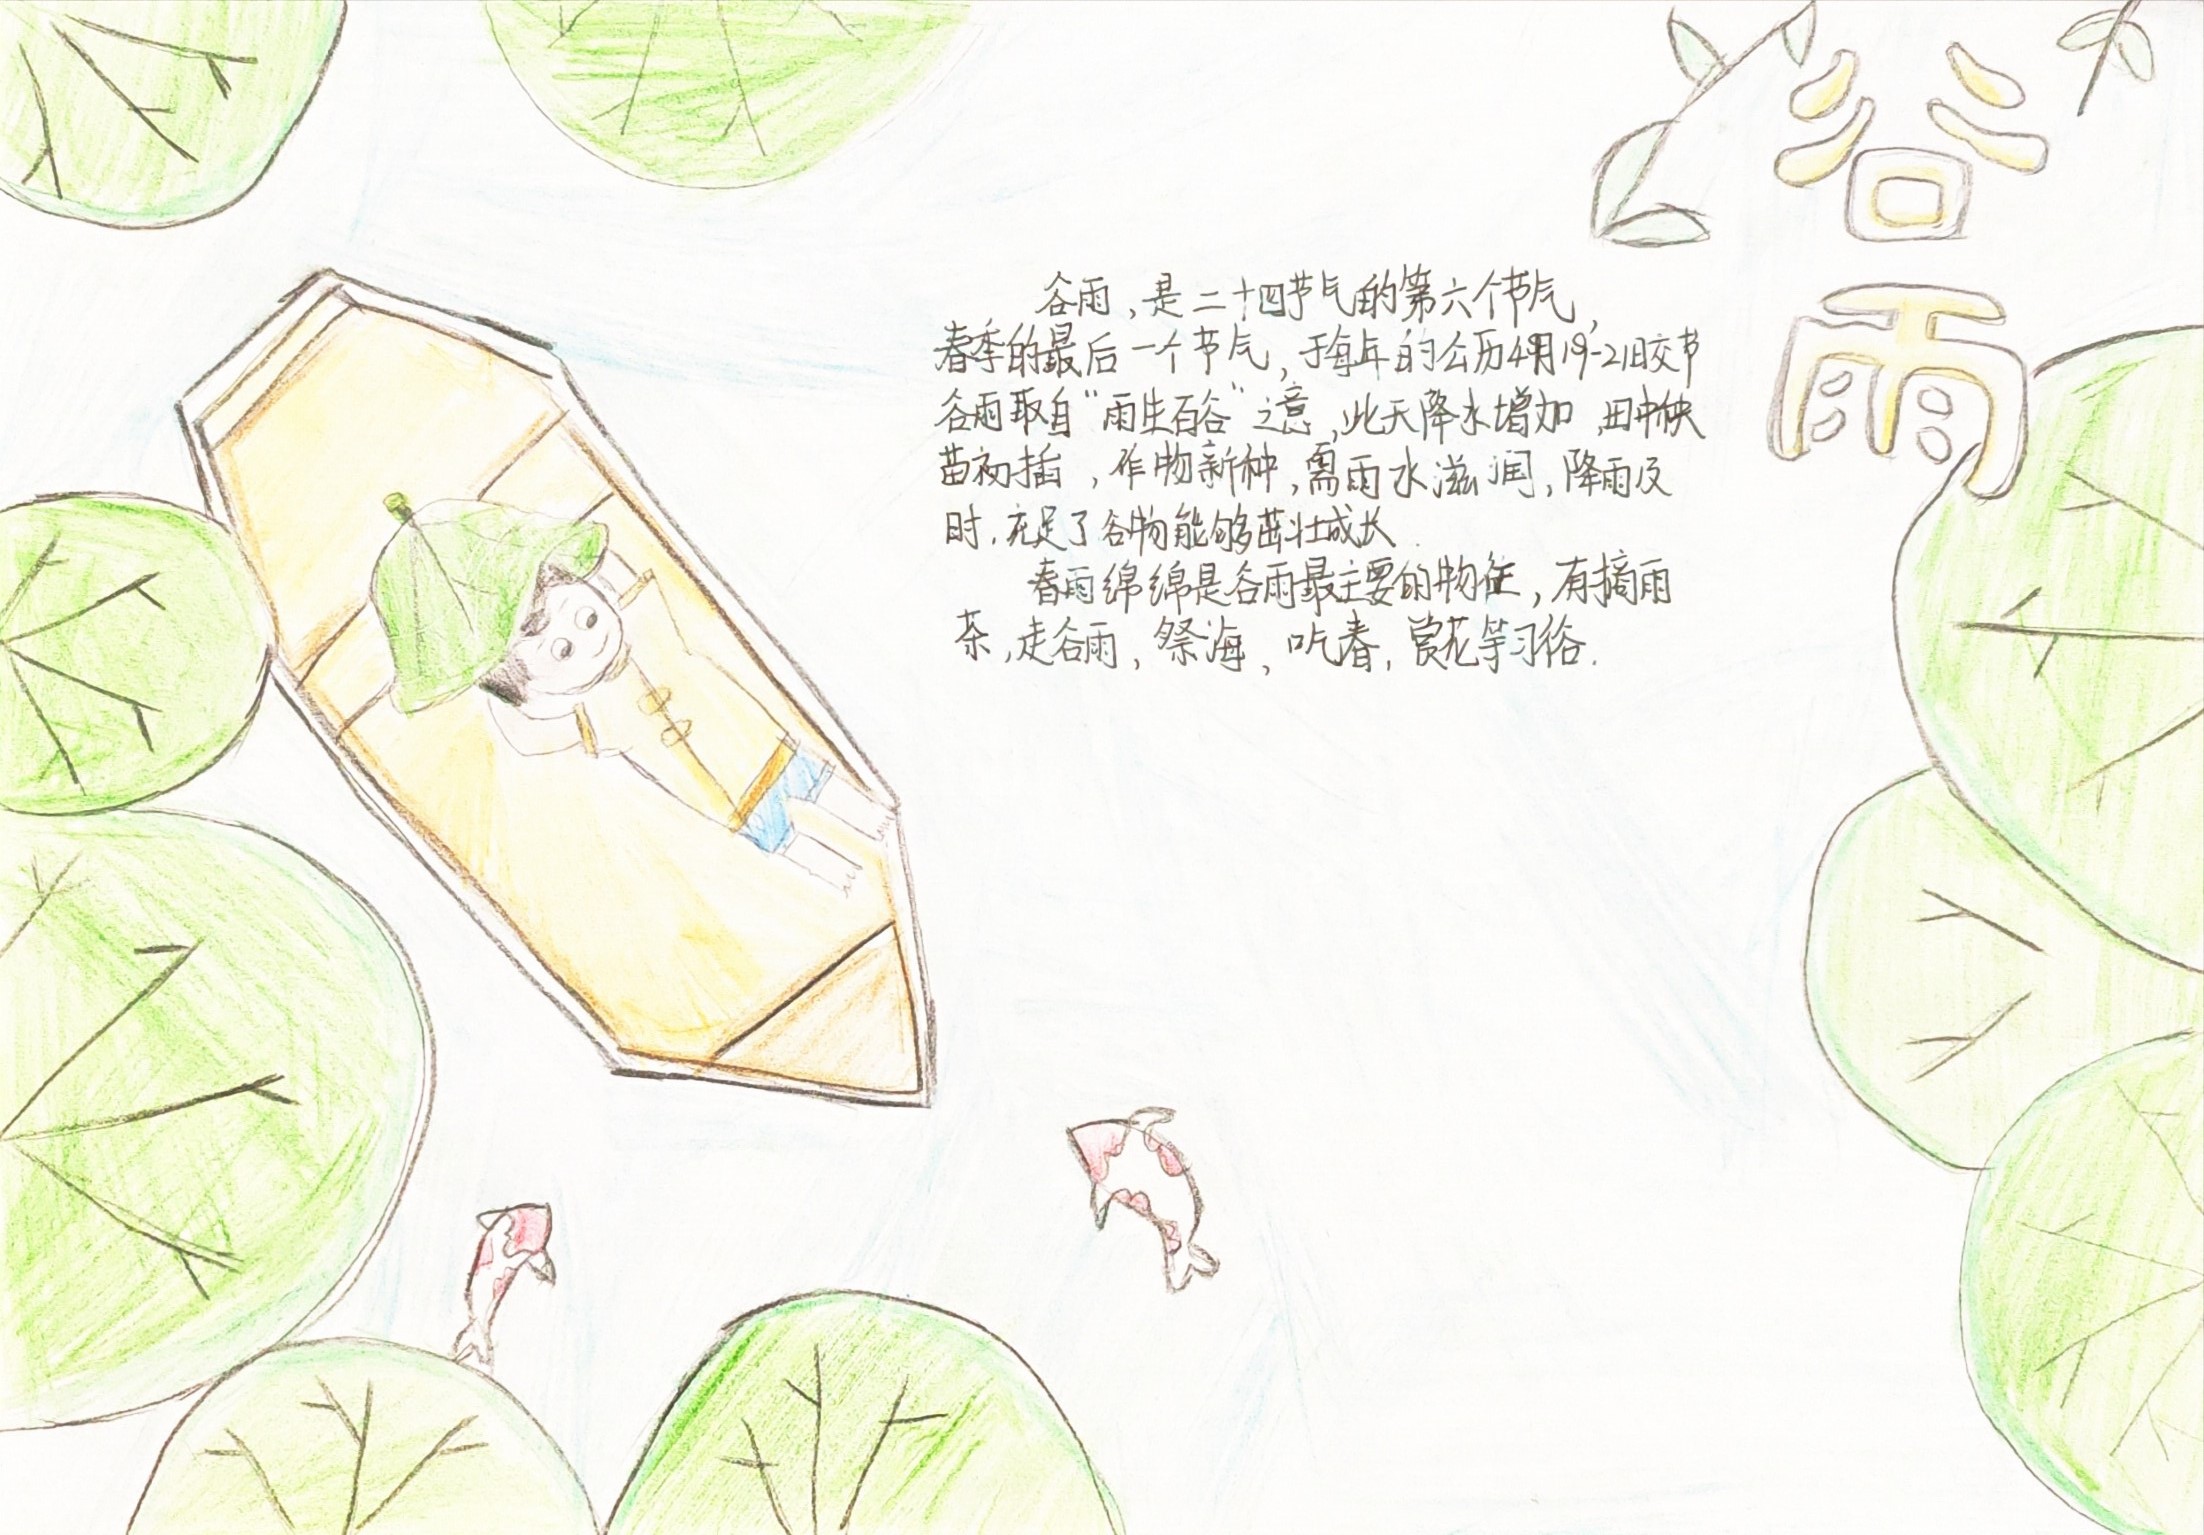 谷雨
谷雨,是二十四节气的第六个节气,
春季的最后一个节气,于每年的公历4月19-21日交节
谷雨取自“雨生百谷”之意,此天降水增加,田中秧
苗初插,作物新种,需雨水滋润,降雨及
时.充足了谷物能够茁壮成长.
春雨绵绵是谷雨最主要的物征,有摘雨
茶,走谷雨,祭海,吃春,赏花等习俗.